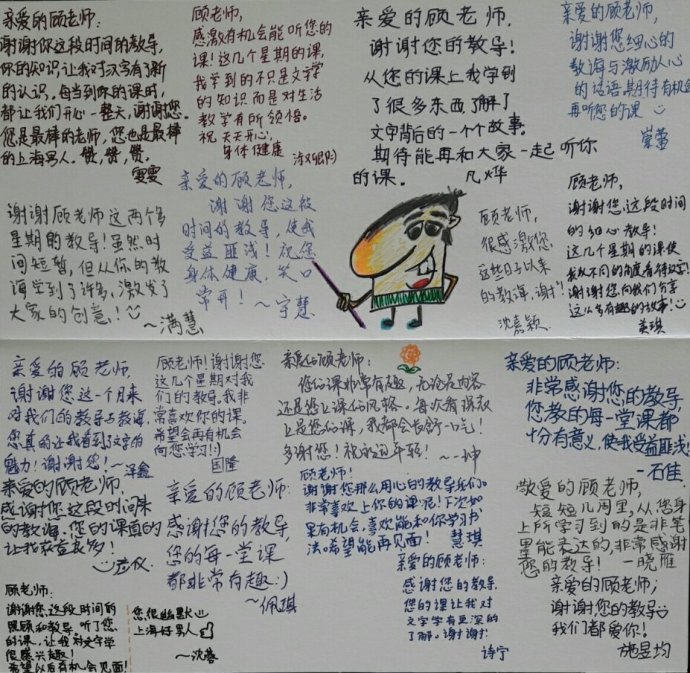 亲爱的顾老师：
谢谢你这段时间的教导，
你的知识，让我对汉字有了新
的认识，每当到你的课时，
都让我们开心一整天，谢谢您。
您是最棒的老师，您也是最棒
的上海男人。赞，赞，赞，
雯雯
顾老师，
感激有机会能听您的
课！这几个星期的课，
我学到的不只是文学
的知识而是对生活
教学有所领悟。
祝 天天开心，
身体健康
亲爱的顾老师，
谢谢您的教导！
从您的课上我学到
了很多东西了解了
文字背后的一个个故事。
期待能再和大家一起听你
的课。 凡烨
亲爱的顾老师，
谢谢您细心的
教诲与激励人心
的话语，期待有机会
再听您的课
崇萤
谢谢顾老师这两个多
星期的教导！虽然时
间短暂，但从你的教
诲学到了许多，激发了
大家的创意！
~满慧
亲爱的顾老师，
谢谢您这段
时间的教导，使我
受益匪浅！祝您
身体健康，笑口
常开！~宇慧
顾老师，
很感激您
这些日子以来
的教诲，谢谢！
沈嘉颖
亲爱的顾老师，
谢谢您这段时间
的知心教导！
这几个星期的课使
我从不同的角度看待汉字！
谢谢您向我们分享
这么多有趣的故事！
美琪
亲爱的顾老师，
谢谢您这一个月来
对我们的教导与教诲，
您真的让我看到了文字的
魅力！谢谢您！~泽鑫
顾老师！谢谢您
这几个星期对我
们的教导，我非
常喜欢你的课。
希望会再有机会
向您学习！:)
国隆
亲爱的顾老师：
您的课非常有趣，无论是内容
还是您上课的风格。每次看课表
上是您的课，我都会舒一口气！
多谢您！祝永远年轻！~一坤
亲爱的顾老师：
非常感谢您的教导，
您教的每一堂课都
十分有意义，使我受益匪浅！
—石佳
亲爱的顾老师，
感谢您这段时间来
的教诲，您的课真的
让我获益良多！
亲爱的顾老师：
感谢您的教导，
您的每一堂课
都非常有趣:)
~佩琪
顾老师！
谢谢您那么用心的教导我们。
非常喜欢上你的课呢！下次如
果有机会，喜欢能和你学习书
法。希望能再见面！ 慧琪
敬爱的顾老师，
短短几周里，从您身
上所学习到的是非笔
墨能表达的，非常感谢
您的教导！ —晓雁
顾老师：
谢谢您这段时间的
照顾和教导 听了您
的课，让我对文字学
很感兴趣！
希望以后有机会见面！
您很幽默
上海好男人
~沈蓉
亲爱的顾老师：
感谢您的教导，
您的课让我对
文字学有更深的
了解。谢谢！
诗宁
亲爱的顾老师，
谢谢您的教导
我们都爱你！
施昱均